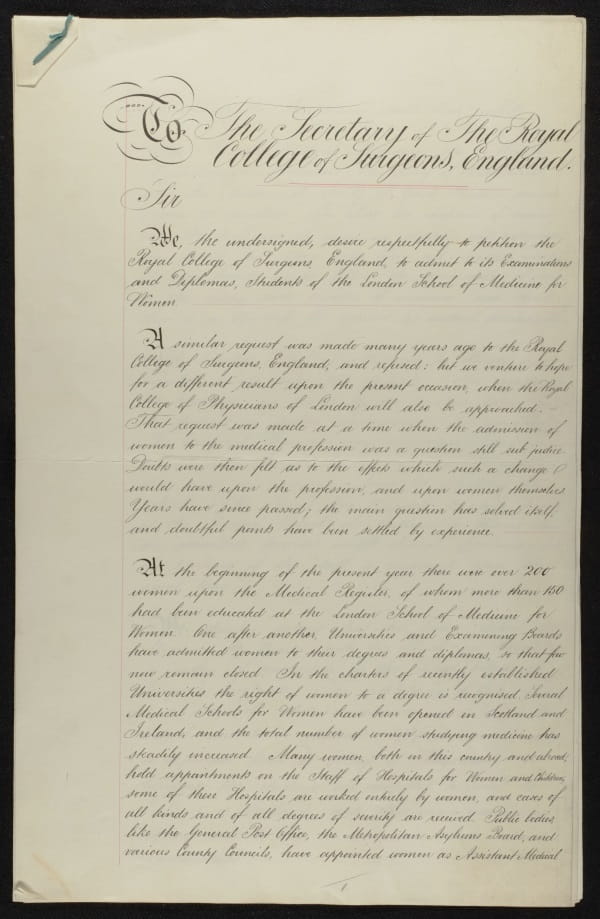 To The Secretary of The Royal
College of Surgeons, England.
Sir
We, the undersigned, desire respectfully to petition the
Royal College of Surgeons, England, to admit to its Examinations
and Diplomas, Students of the London School of Medicine for
Women.
A similar request was made many years ago to the Royal
College of Surgeons, England, and refused: but we venture to hope
for a different result upon the present occasion, when the Royal
College of Physicians of London will also be approached. —
That request was made at a time when the admission of
women to the medical profession was a question still sub judice.
Doubts were then felt as to the effects which such a change
would have upon the profession, and upon women themselves.
Years have since passed; the main question has solved itself,
and doubtful points have been settled by experience.
At the beginning of the present year there were over 200
women upon the Medical Register, of whom more than 150
had been educated at the London School of Medicine for
Women. One after another, Universities and Examining Boards
have admitted women to their degrees and diplomas, so that few
now remain closed. In the charters of recently established
Universities the right of women to a degree is recognised. Several
Medical Schools for Women have been opened in Scotland and
Ireland, and the total number of women studying medicine has
steadily increased. Many women, both in this country and abroad,
hold appointments on the Staff of Hospitals for Women and Children,
some of these Hospitals are worked entirely by women, and cases of
all kinds and of all degrees of severity are received. Public bodies,
like the General Post Office, the Metropolitan Asylums Board, and
various County Councils, have appointed women as Assistant Medical
1